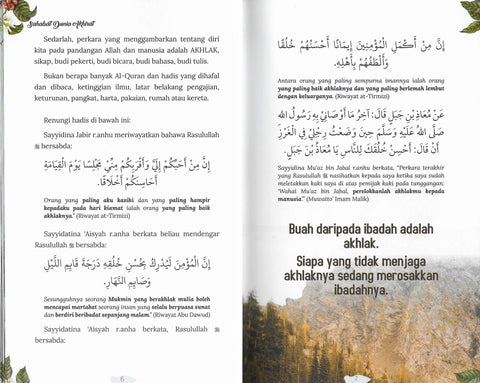 Sahabat Dunia Akhirat
Sedarlah, perkara yang menggambarkan tentang diri
kita pada pandangan Allah dan manusia adalah AKHLAK,
sikap, budi pekerti, budi bicara, budi bahasa, budi tulis.
Bukan berapa banyak Al-Quran dan hadis yang dihafal
dan dibaca, ketinggian ilmu, latar belakang pengajian,
keturunan, pangkat, harta, pakaian, rumah atau kereta.
Renungi hadis di bawah ini:
Sayyidina Jabir r.anhu meriwayatkan bahawa Rasulullah
ﷺ bersabda:
إِنَّ مِنْ أَحَبِّكُمْ إِلَيَّ وَأَقْرَبِكُمْ مِنِّي مَجْلِسًا يَوْمَ الْقِيَامَةِ
أَحَاسِنَكُمْ أَخْلَاقًا.
Orang yang paling aku kasihi dan yang paling hampir
kepadaku pada hari kiamat ialah orang yang paling baik
akhlaknya." (Riwayat at-Tirmizi)
Sayyidatina 'Aisyah r.anha berkata beliau mendengar
Rasulullah ﷺ bersabda:
إِنَّ الْمُؤْمِنَ لَيُدْرِكُ بِحُسْنِ خُلُقِهِ دَرَجَةَ قَايِمِ اللَّيْلِ
وَصَايِمِ النَّهَارِ.
Sesungguhnya seorang Mukmin yang berakhlak mulia boleh
mencapai martabat seorang insan yang selalu berpuasa sunat
dan berdiri beribadat sepanjang malam." (Riwayat Abu Dawud)
Sayyidatina 'Aisyah r.anha berkata, Rasulullah ﷺ
bersabda:
6
إِنَّ مِنْ أَكْمَلِ الْمُؤْمِنِينَ إِيمَانًا أَحْسَنُهُمْ خُلُقًا
وَأَلْطَفُهُمْ بِأَهْلِهِ.
Antara orang yang paling sempurna imannya ialah orang
yang paling baik akhlaknya dan yang paling berlemah lembut
dengan keluarganya. (Riwayat at-Tirmizi)
عَنْ مُعَاذِ بْنِ جَبَلٍ قَالَ: آخِرُ مَا أَوْصَانِي بِهِ رَسُولُ اللهِ
صَلَّى اللهُ عَلَيْهِ وَسَلَّمَ حِينَ وَضَعْتُ رِجْلِي فِي الْغَرْزِ
أَنْ قَالَ: أَحْسِنْ خُلُقَكَ لِلنَّاسِ يَا مُعَاذُ بْنَ جَبَلٍ.
Sayyidina Mu'az bin Jabal r.anhu berkata, "Perkara terakhir
yang Rasulullah ﷺ nasihatkan kepada saya ketika saya sudah
meletakkan kaki saya di atas pemijak kaki pada tunggangan:
'Wahai Mu'az bin Jabal, perelokkanlah akhlakmu kepada
manusia'." (Muwatto' Imam Malik)
Buah daripada ibadah adalah
akhlak.
Siapa yang tidak menjaga
akhlaknya sedang merosakkan
ibadahnya.
7